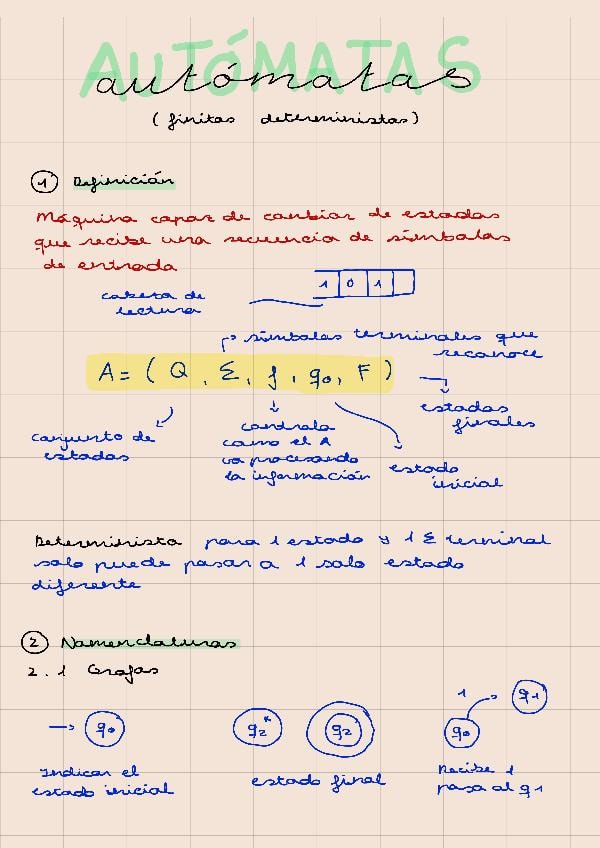 AUTÓMATAS
autómatas
(finitos deterministas)
1 Definición
Máquina capaz de cambiar de estados
que recibe una secuencia de símbolos
de entrada
1 0 1
cabeza de
lectura
símbolos terminales que
reconoce
A = ( Q , Σ , f , q0 , F )
estados
finales
conjunto de
estados
controla
como el A
va procesando
la información
estado
inicial
Determinista para 1 estado y 1 Σ terminal
solo puede pasar a 1 solo estado
diferente
2 Nomenclaturas
2.1 Grafos
1 q1
→ q0 q2* q2 q0
Indican el
estado inicial
estado final
Recibe 1
pasa al q1